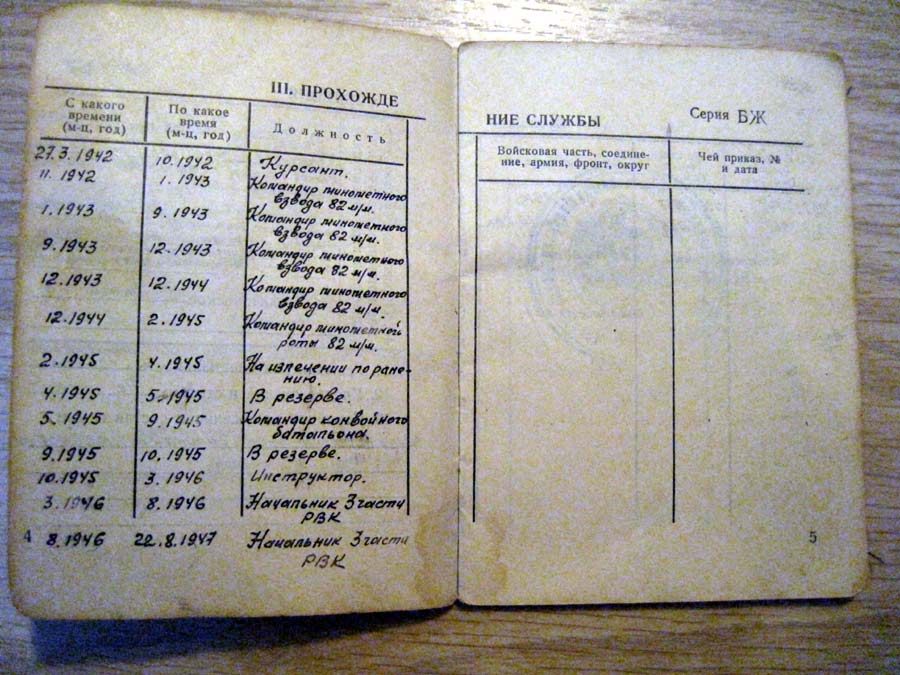 III. ПРОХОЖДЕ
С какого времени (м-ц, год)
По какое время (м-ц, год)
Должность
27.3.1942 10.1942 Курсант.
11.1942 1.1943 Командир минометного
взвода 82 м/м.
1.1943 9.1943 Командир минометного
взвода 82 м/м.
9.1943 12.1943 Командир минометного
взвода 82 м/м.
12.1943 12.1944 Командир минометного
взвода 82 м/м.
12.1944 2.1945 Командир минометной
роты 82 м/м.
2.1945 4.1945 На излечении по ране-
нию.
4.1945 5.1945 В резерве.
5.1945 9.1945 Командир конвойного
батальона.
9.1945 10.1945 В резерве.
10.1945 3.1946 Инструктор.
3.1946 8.1946 Начальник 3 части
РВК
8.1946 22.8.1947 Начальник 3 части
РВК
4
НИЕ СЛУЖБЫ
Серия БЖ
Войсковая часть, соедине-
ние, армия, фронт, округ
Чей приказ, №
и дата
5